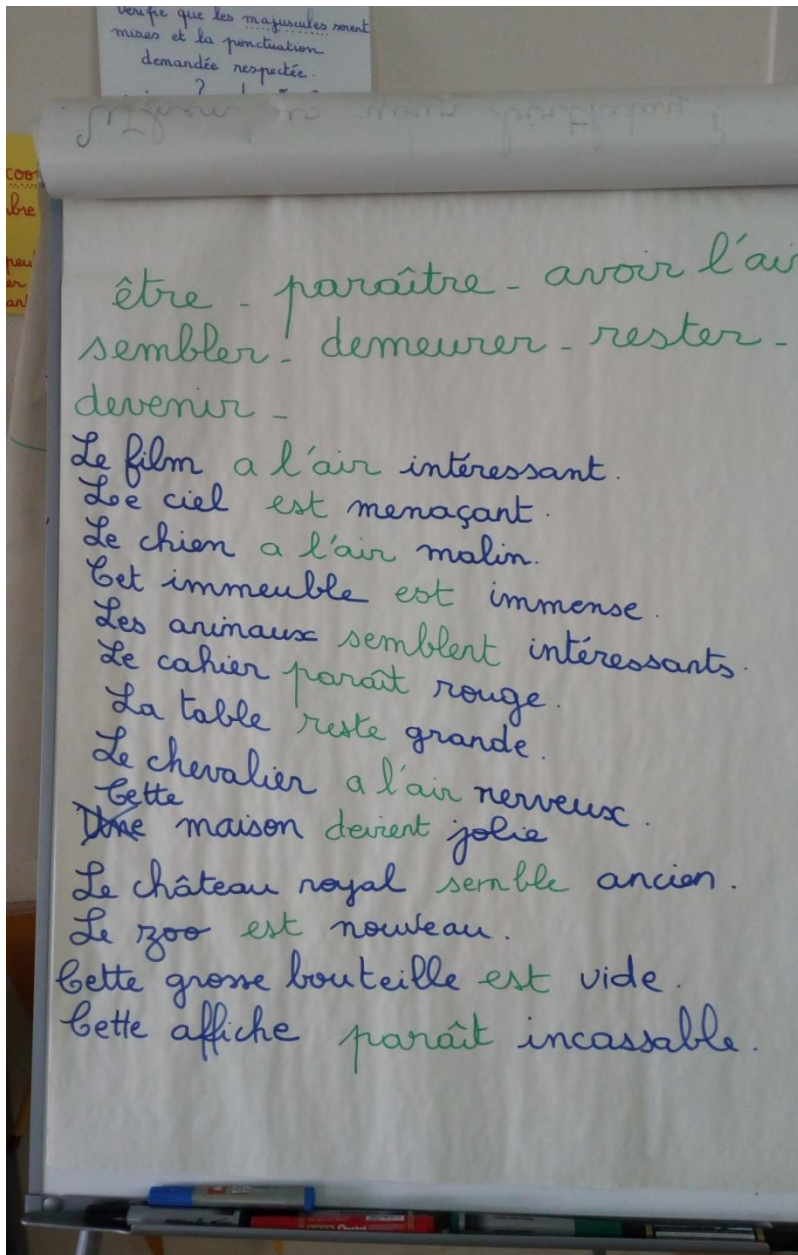 vérifie que les majuscules soient
mises et la ponctuation
demandée respectée.
être - paraître - avoir l'air
sembler - demeurer - rester -
devenir -
Le film a l'air intéressant.
Le ciel est menaçant.
Le chien a l'air malin.
Cet immeuble est immense.
Les animaux semblent intéressants.
Le cahier paraît rouge.
La table reste grande.
Le chevalier a l'air nerveux.
Cette
Une maison devient jolie
Le château royal semble ancien.
Le zoo est nouveau.
Cette grosse bouteille est vide.
Cette affiche paraît incassable.